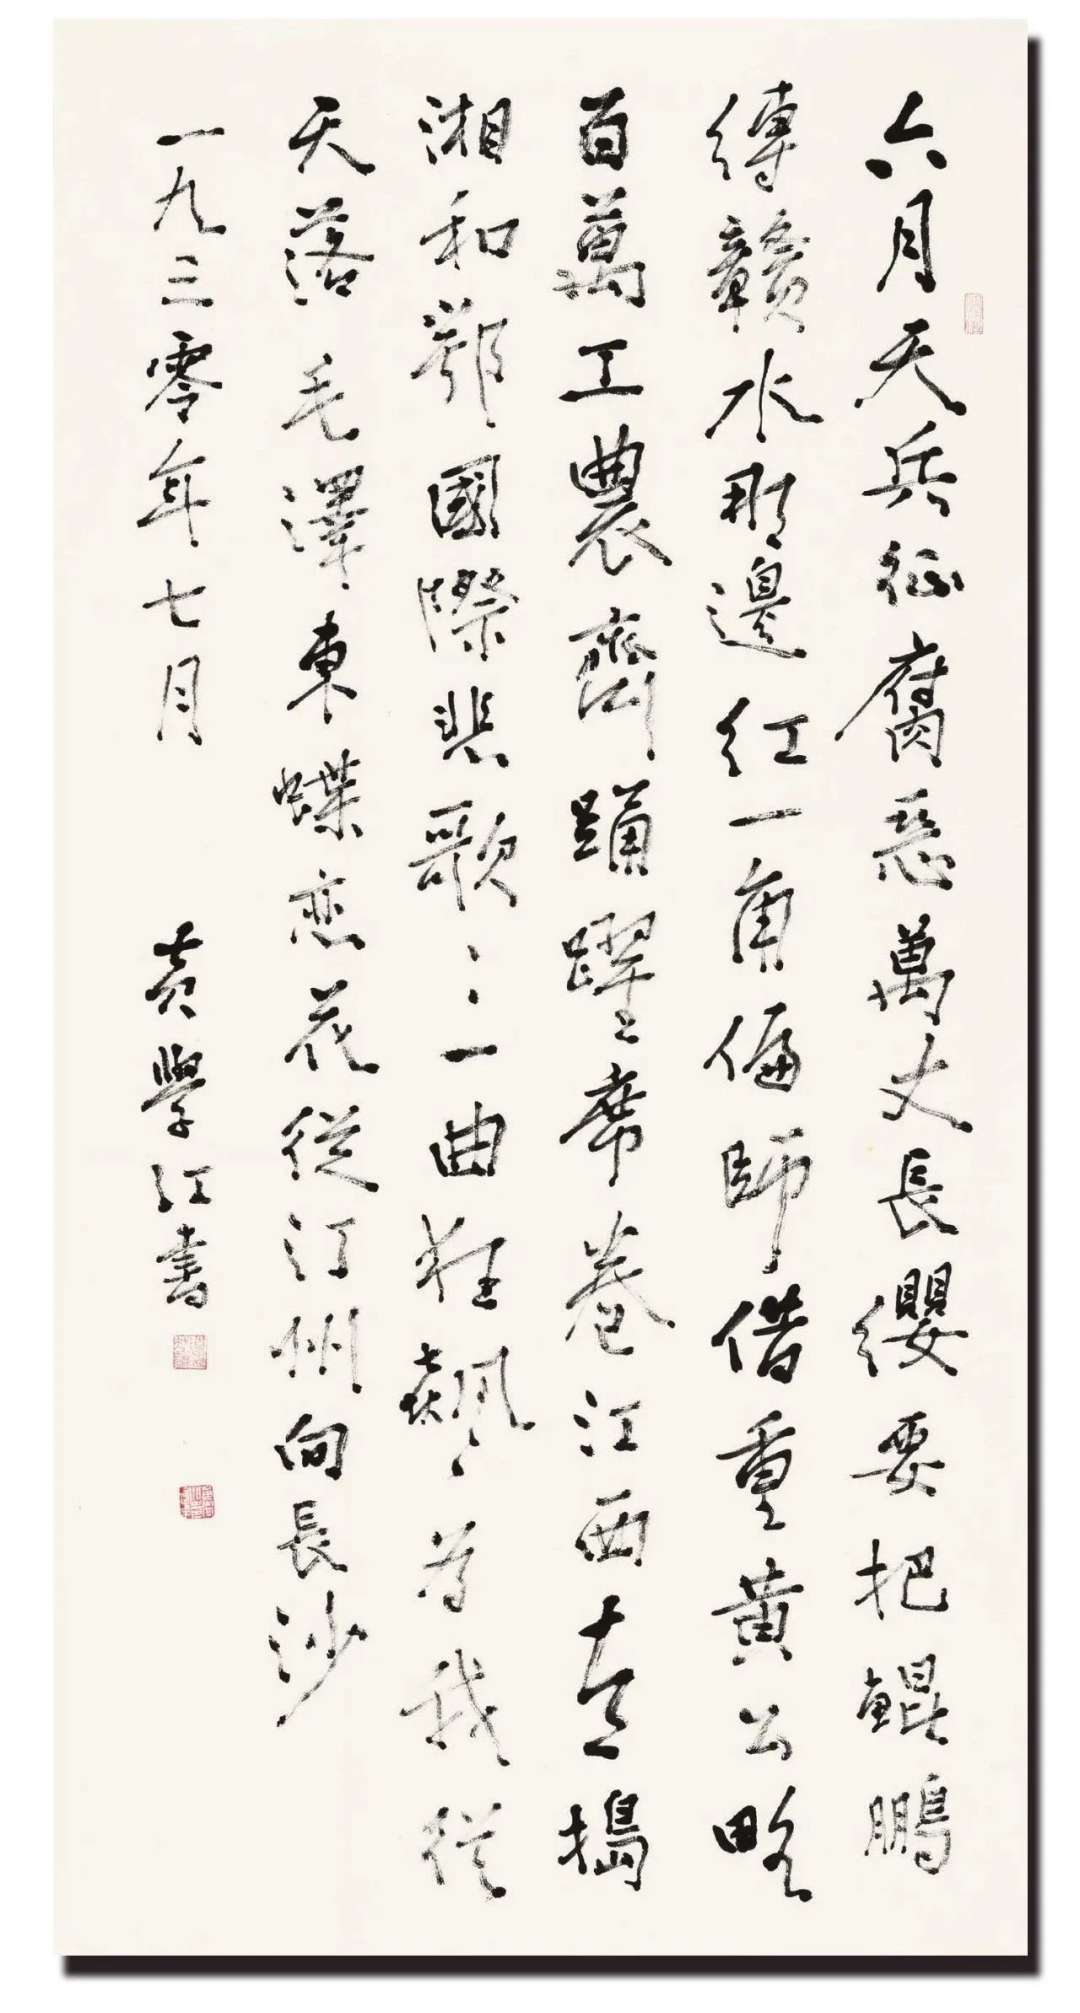 六月天兵征腐惡萬丈長纓要把鯤鵬
縛贛水那邊紅一角偏師借重黄公略
百萬工農齊踴躍席卷江西直搗
湘和鄂國際悲歌歌一曲狂飆為我從
天落毛澤東蝶恋花從汀州向長沙
一九三零年七月 黄學江書